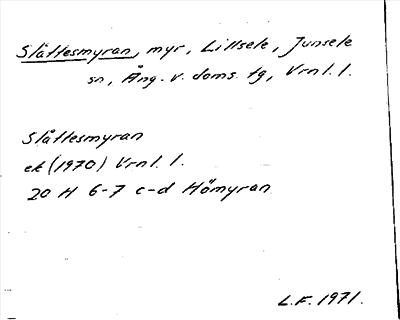 Slåttesmyran, myr, Lillsele, Junsele
sn, Ång. v. doms. tg, Vrnl. l.
Slåttesmyran
ek (1970) Vrnl. l.
20 H 6-7 c-d Hömyran
L.F. 1971.